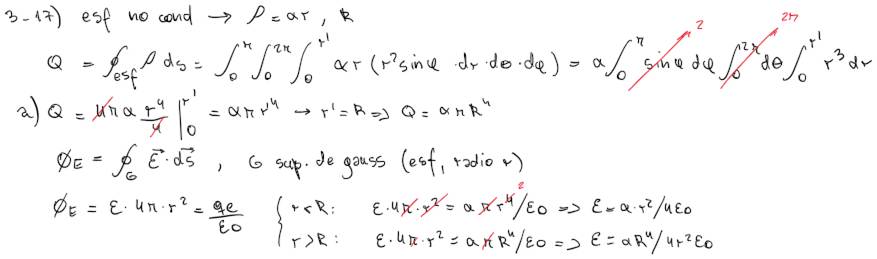 3-17) esf no cond → ρ = αr , R
Q = ∮esf ρ ds = ∫₀^π ∫₀^2π ∫₀^r' αr (r² sinφ · dr · dθ · dφ) = α ∫₀^π sinφ dφ 2 ∫₀^2π dθ 2π ∫₀^r' r³ dr
a) Q = 4πα r⁴/4 |₀^r' = απr'⁴ → r' = R => Q = απR⁴
ØE = ∮G E · ds , G sup. de gauss (esf, radio r)
ØE = E · 4π · r² = qe/ε0 { r<R: E · 4π · r² = απr⁴/ε0 2 => E = α · r²/4ε0
r>R: E · 4π · r² = απR⁴/ε0 => E = αR⁴/4r²ε0